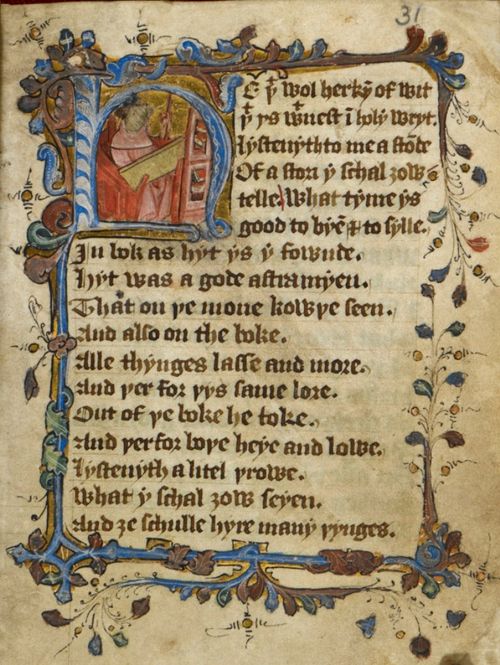 31
HE þͭ wol herkȳ of wit
þͭ ys wͥnest ī holy wryt.
Lystenyth to me a stōde
Of a stori y schal ȝow
telle. What tyme ys
good to byē ⁊ to sylle.
In bok as hyt ys y fownde.
Hyt was a gode astramyen.
That on þe mone kowþe seen.
And also on the boke.
Alle thynges lasse and more.
And þer for þys same lore.
Out of þe boke he toke.
And þerfor boþe heye and lowe.
Lystenyth a litel þrowe.
What y schal ȝow seyen.
And ȝe schulle hyre many þynges.